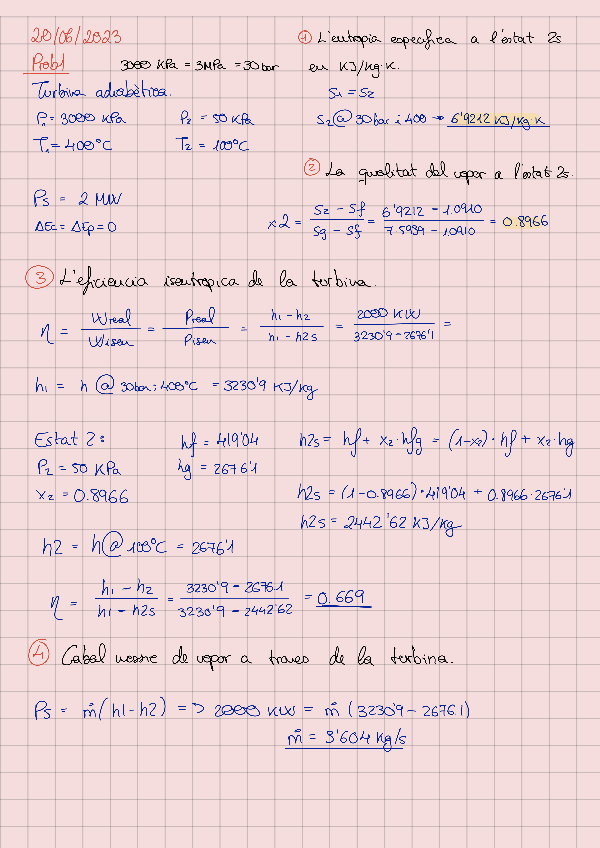 20/06/2023
Prob1
3000 KPa = 3MPa = 30 bar
Turbina adiabàtica.
P1 = 3000 KPa P2 = 50 KPa
T1 = 400°C T2 = 100°C
Ps = 2 MW
ΔEc = ΔEp = 0
1 L'entropia específica a l'estat 2s
en KJ/kg·K.
S1 = S2
S2 @ 30 bar i 400 → 6'9212 KJ/kg·K
2 La qualitat del vapor a l'estat 2s.
x2 = (S2 - Sf)/(Sg - Sf) = (6'9212 - 1.0910)/(7.5939 - 1.0910) = 0.8966
3 L'eficiencia isentropica de la turbina.
η = Wreal/Wisen = Preal/Pisen = (h1 - h2)/(h1 - h2s) = 2000 KW/(3230'9 - 2676'1) =
h1 = h @ 30bar; 400°C = 3230'9 KJ/kg
Estat 2:
P2 = 50 KPa
x2 = 0.8966
hf = 419'04
hg = 2676'1
h2s = hf + x2·hfg = (1-x2)·hf + x2·hg
h2s = (1-0.8966)·419'04 + 0.8966·2676'1
h2s = 2442'62 KJ/kg
h2 = h@100°C = 2676'1
η = (h1 - h2)/(h1 - h2s) = (3230'9 - 2676.1)/(3230'9 - 2442'62) = 0.669
4 Cabal de vapor a traves de la turbina.
Ps = ṁ(h1-h2) => 2000 KW = ṁ (3230'9 - 2676.1)
ṁ = 3'604 kg/s